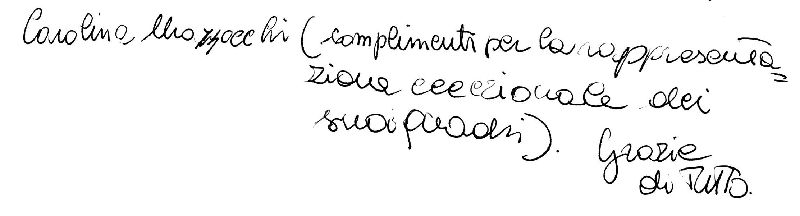 Carolina Mozzocchi (complimenti per la rappresenta=
zione eccezionale dei
suoi quadri). Grazie
di TUTTO.